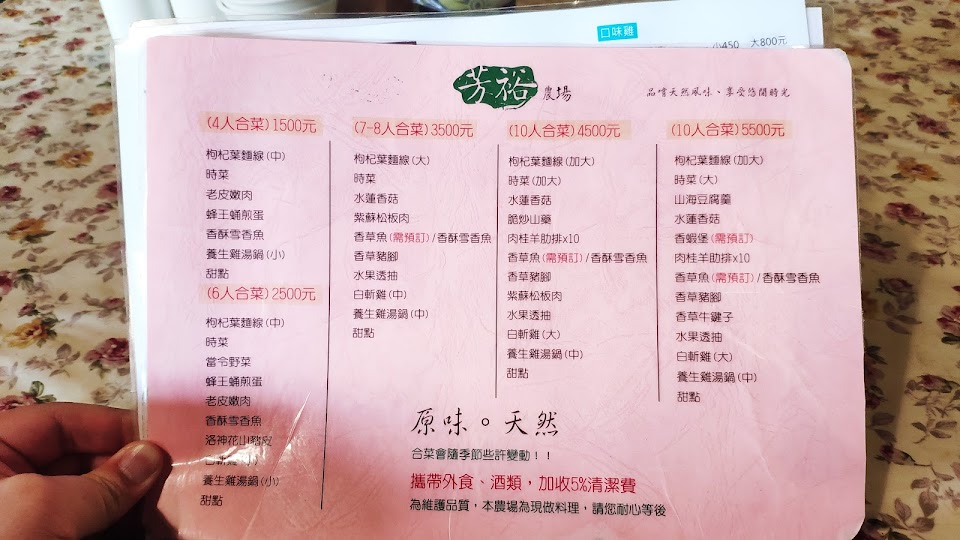 口味雞
小450 大800元
芳裕
農場
品嚐天然風味、享受悠閒時光
(4人合菜)1500元
枸杞葉麵線(中)
時菜
老皮嫩肉
蜂王蛹煎蛋
香酥雪香魚
養生雞湯鍋(小)
甜點
(6人合菜)2500元
枸杞葉麵線(中)
時菜
當令野菜
蜂王蛹煎蛋
老皮嫩肉
香酥雪香魚
洛神花山豬皮
白斬雞(小)
養生雞湯鍋(小)
甜點
(7-8人合菜)3500元
枸杞葉麵線(大)
時菜
水蓮香菇
紫蘇松板肉
香草魚(需預訂)/香酥雪香魚
香草豬腳
水果透抽
白斬雞(中)
養生雞湯鍋(中)
甜點
(10人合菜)4500元
枸杞葉麵線(加大)
時菜(加大)
水蓮香菇
脆炒山藥
肉桂羊肋排x10
香草魚(需預訂)/香酥雪香魚
香草豬腳
紫蘇松板肉
水果透抽
白斬雞(大)
養生雞湯鍋(中)
甜點
(10人合菜)5500元
枸杞葉麵線(加大)
時菜(大)
山海豆腐羹
水蓮香菇
香蝦堡(需預訂)
肉桂羊肋排x10
香草魚(需預訂)/香酥雪香魚
香草豬腳
香草牛鍵子
水果透抽
白斬雞(大)
養生雞湯鍋(中)
甜點
原味。天然
合菜會隨季節些許變動！！
攜帶外食、酒類，加收5%清潔費
為維護品質，本農場為現做料理，請您耐心等後